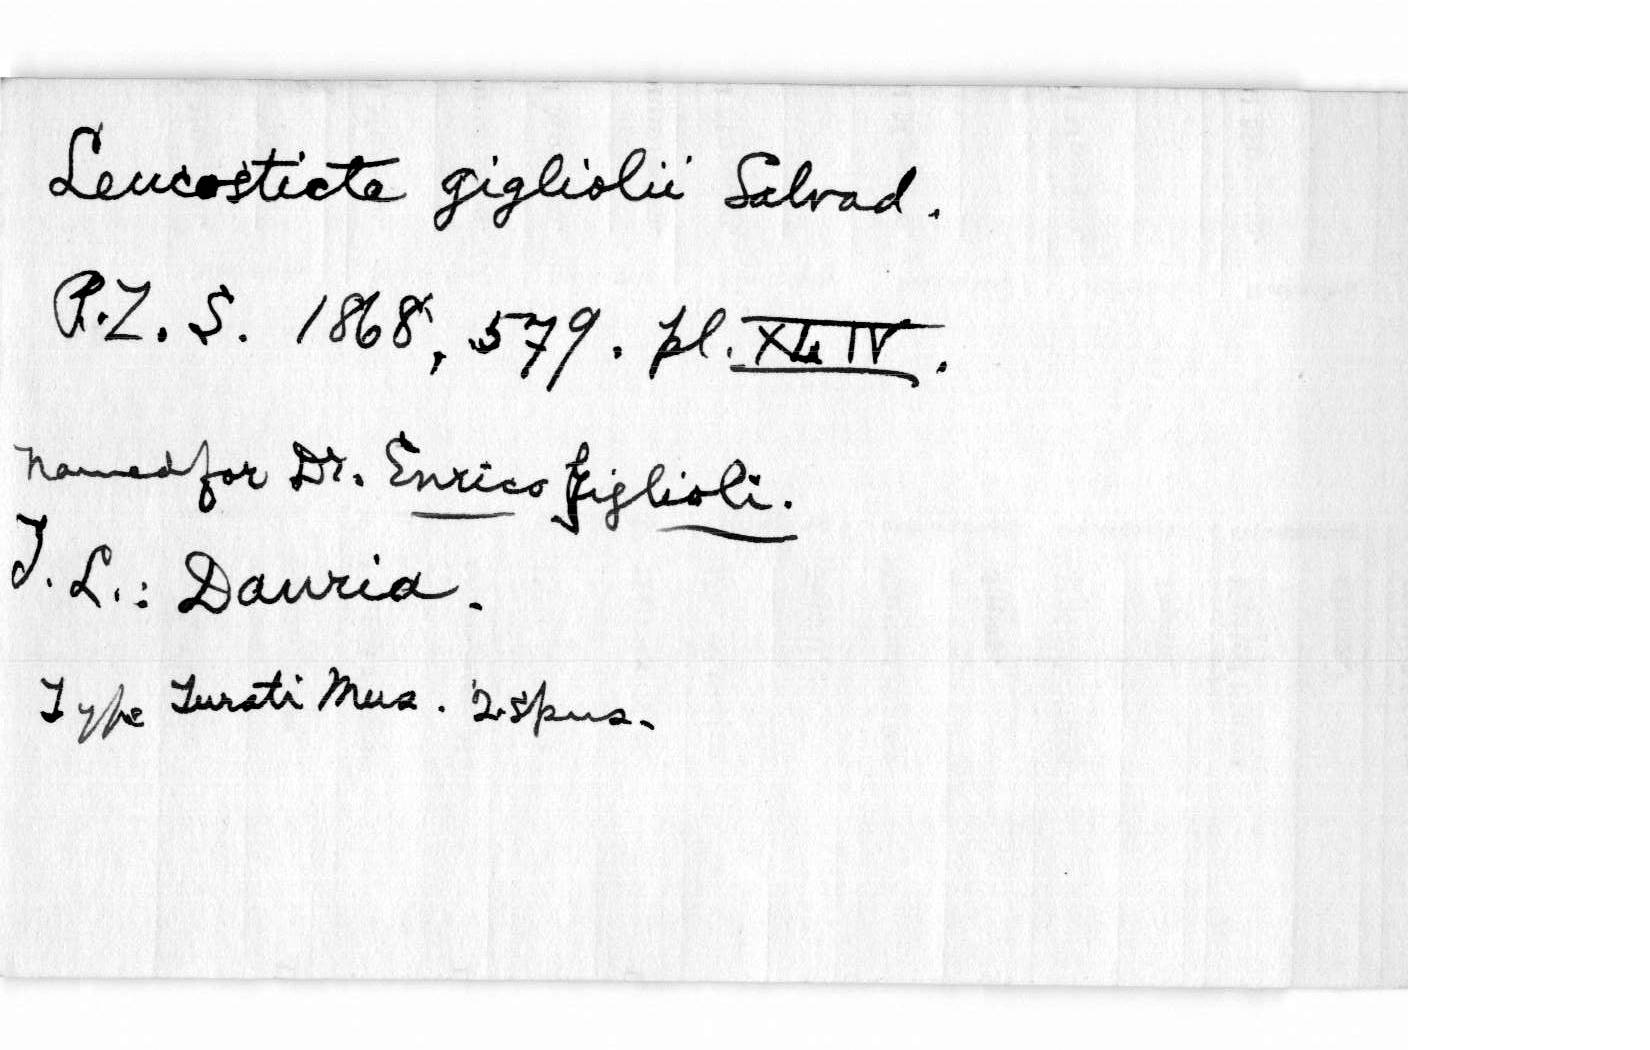 Leucosticte gigliolii Salvad.
P.Z.S. 1868, 579. pl. XLIV.
Named for Dr. Enrico Giglioli.
T.L.: Dauria.
Type Turati Mus. 2 spms.